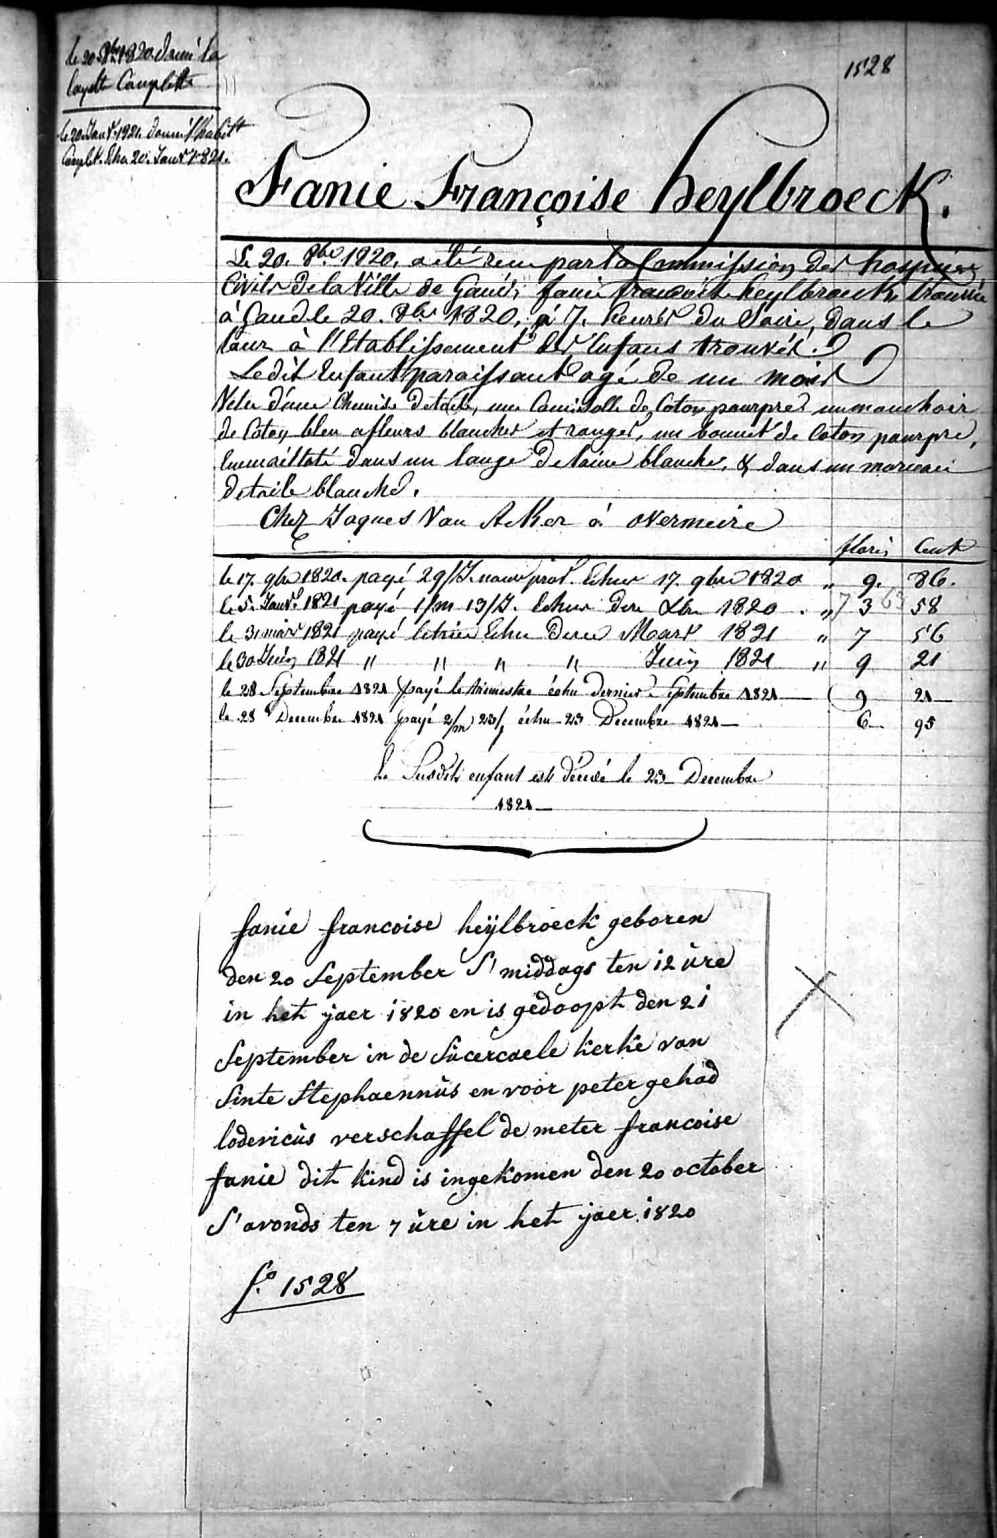 le 20 8bre 1820 donné la
layette Complette
le 20 Janvr 1821 donné l'habitt
Complt. Echu 20. Janvr 1821.
1528
Fanie Françoise heylbroeck.
Le 20. 8bre 1820. a été reçu par la Commission des hospices
Civils de la Ville de Gand, fanie francoise heylbroeck trouvée
à Gand le 20. 8bre 1820, à 7. heures du Soir, dans le
tour à l'Etablissement des Enfans trouvés.
Ledit Enfant paraissant agé de un mois
Vetu d'une Chemise de toile, une Camisolle de Coton pourpre, un mouchoir
de Coton bleu a fleurs blanches et rouges, un bonnet de Coton pourpre,
Emmaillotté dans un lange de laine blanche, & dans un morceau
de toile blanche.
Chez Jaques Van Acker à Overmeire
floris Cent
le 17. 9bre 1820. payé 29/J. Echu 17. 9bre 1820 " 9. 86.
le 5. Janvr 1821 payé 1/m 13/J. Echu Xbre 1820 . " 3 58
7 63
le 31 mars 1821 payé Echu Mars 1821 " 7 56
le 30 Juin 1821 " " " " Juin 1821 " 9 21
le 28 Septembre 1821 payé le trimestre échu dernier Septembre 1821 — 9 21
le 28 Decembre 1821 payé 2/m 23/j échu 23 Decembre 1821 — 6 95
Le Susdit enfant est décédé le 23 Decembre
1821 —
fanie francoise heÿlbroeck geboren
den 20 September S' middags ten 12 ùre
in het jaer 1820 en is gedoopt den 21
September in de Sùccersaele kerke van
Sinte Stephaennùs en voor peter gehad
lodevicùs verschaffel de meter francoise
fanie dit kind is ingekomen den 20 october
S' avonds ten 7 ùre in het jaer 1820
f.o 1528